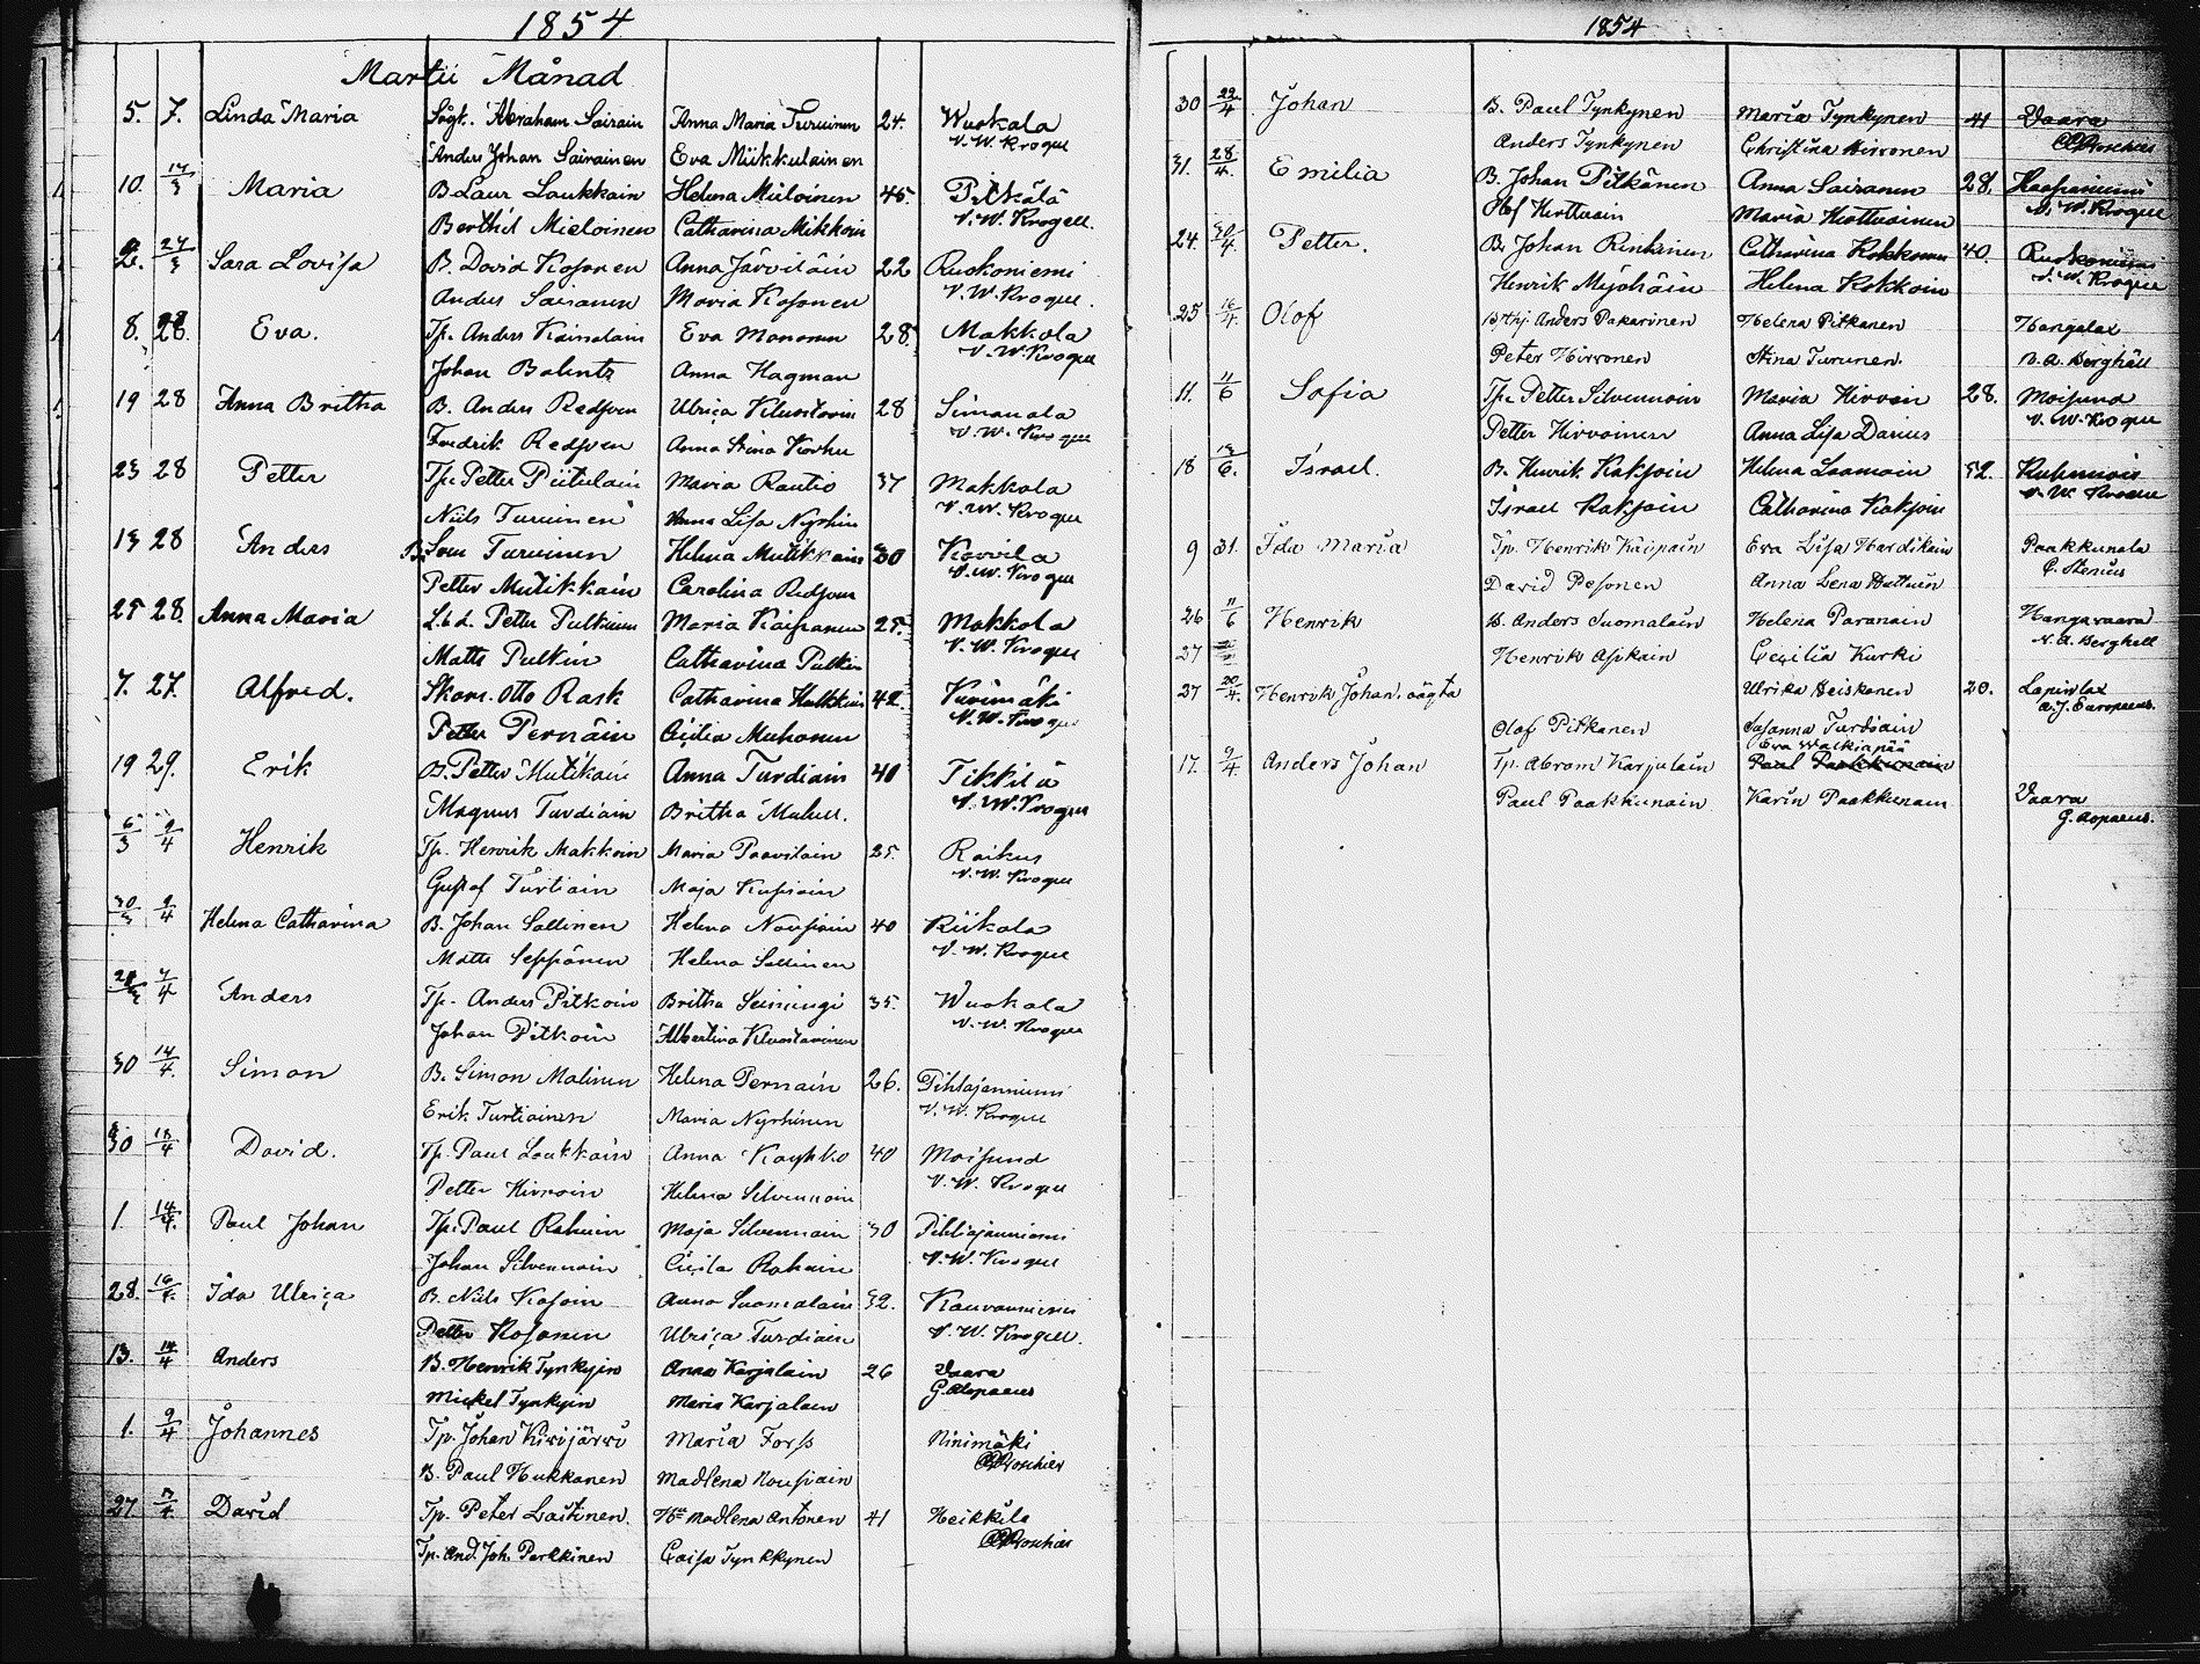 1854
Martii Månad
5. 7. Linda Maria Sågk. Abraham Sairain Anna Maria Turuinen 24. Wuokala
Anders Johan Sairainen Eva Miikkulainen V. W. Krogell
10. 17/3 Maria B. Laur Laukkain Helena Mieloinen 45. Pitkälä
Berthil Mieloinen Catharina Mikkoin V. W. Krogell.
2. 27/3 Sara Lovisa B. David Kosonen Anna Järviläin 22 Ruokoniemi
Anders Sairanen Maria Kosonen V. W. Krogell.
8. 28. Eva. Tp. Anders Kainolain Eva Mononen 28. Makkola
Johan Bahntz Anna Hagman V. W. Krogell
19 28 Anna Britha B. Anders Redsven Ulrica Kluutarin 28 Simanala
Fredrik Redsven Anna Stina Korhu V. W. Krogell
23 28 Petter Tp. Petter Piitulain Maria Rautio 37 Makkola
Niils Turuinen Anna Lisa Nyrhin V. W. Krogell
13 28 Anders B. Sam Turuinen Helena Mutikkain 30 Kovvila
Petter Mutikkain Carolina Redsven V. W. Krogell
25 28. Anna Maria L.b.d. Petter Pulkinen Maria Kaipanen 25. Makkola
Matts Pulkin Catharina Pulkin V. W. Krogell
7. 27. Alfred. Skom. Otto Rask Catharina Hulkkin 42. Kurimäki
Petter Pernäin Cicilia Muhonen V. W. Krogell
19 29. Erik B. Petter Mutikain Anna Turdiain 40 Tikkilä
Magnus Turdiain Britha Muhell. V. W. Krogell
6/3 9/4 Henrik Tp. Henrik Makkoin Maria Paavilain 25. Raikus
Gustaf Turtiain Maja Kupiain V. W. Krogell
30/3 9/4 Helena Catharina B. Johan Sallinen Helena Nousiain 40 Riikola
Matts Seppänen Helena Sallinen V. W. Krogell
7/4 Anders Tp. Anders Pitkoin Britha Seiningi 35. Wuokala
Johan Pitkoin Albertina Kluutarinen V. W. Krogell
30 14/4. Simon B. Simon Malinen Helena Pernain 26. Pihlajanniemi
Erik Turtiainen Maria Nyrhinen V. W. Krogell
30 13/4 David. Tp. Paul Loukkain Anna Kayhko 40 Moisund
Petter Hirvoin Helena Silvennoin V. W. Krogell
1. 14/4. Paul Johan Tp. Paul Rahuin Maja Silvennoin 30 Pihlajanniemi
Johan Silvennoin Cicila Rahuin V. W. Krogell
28. 16/4. Ida Ulrica B. Nils Kosoin Anna Suomalain 32. Kauvanniemi
Petter Kosonen Ulrica Turdiain V. W. Krogell.
13. 14/4 Anders B. Henrik Tynkyin Anna Karjalain 26 Vaara
Mickel Tynkyin Maria Karjalain G. Alopaeus
1. 9/4 Johannes Tp. Johan Kivijärvi Maria Forss Ninimäki
B. Paul Hukkanen Madlena Nousiain Roschier
27. 17/4. David Tp. Peter Laitinen. Hu Madlena Antonen 41 Heikkilä
Tp. And. Joh. Parkkinen Caisa Tynkkynen Roschier
1854
30 22/4 Johan B. Paul Tynkynen Maria Tynkynen 41 Vaara
Anders Tynkynen Christina Hirvonen Roschier
31. 28/4. Emilia B. Johan Pitkänen Anna Sairanen 28. Haapaniemi
Olof Herttuain Maria Herttuainen V. W. Krogell
24. 30/4. Petter. B. Johan Rinkinen Catharina Kokkonen 40. Ruokoniemi
Henrik Myöhäin Helena Kokkoin V. W. Krogell
25 16/4. Olof B. Anders Pakarinen Helena Pitkanen Hangalax
Peter Hirvonen Stina Turunen. N. A. Berghäll
11. 11/6 Sofia Tp. Petter Silvennoin Maria Hirvoin 28. Moisund
Petter Hirvoinen Anna Lisa Darius V. W. Krogell
18 13/6. Israel. B. Henrik Kaksoin Helena Laamain 52. Kuhmois
Israel Kaksoin Catharina Kaksoin V. W. Krogell
9 31. Ida Maria Tp. Henrik Käipain Eva Lisa Hardikain Paakkunala
David Pesonen Anna Lena Huttuin C. Stenius
26 11/6 Henrik B. Anders Suomalain Helena Paranain Hangavaara
27 Henrik Asikain Cecilia Kurki N. A. Berghell
27 20/4. Henrik Johan. oägta Ulrika Heiskanen 20. Lapinlax
Olof Pitkanen Susanna Turdiain A. J. Europaeus.
Eva Walkiapää
17. 9/4. Anders Johan Tp. Abram Karjalain Paul Paakkunain
Paul Paakkunain Karin Paakkunain Vaara
G. Alopaeus.